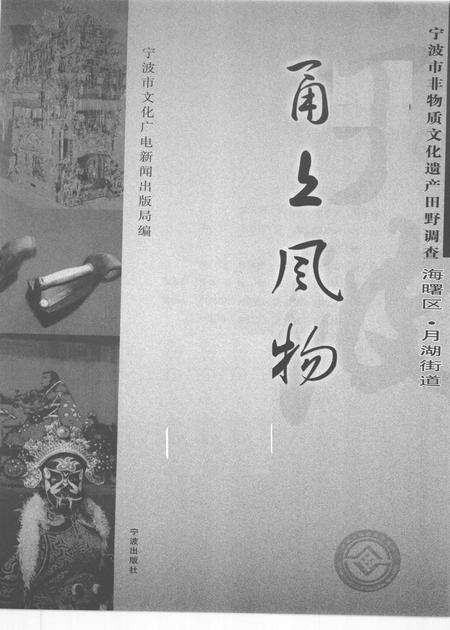 宁波市非物质文化遗产田野调查 海曙区·月湖街道
甬上风物
宁波市文化广电新闻出版局编
宁波出版社